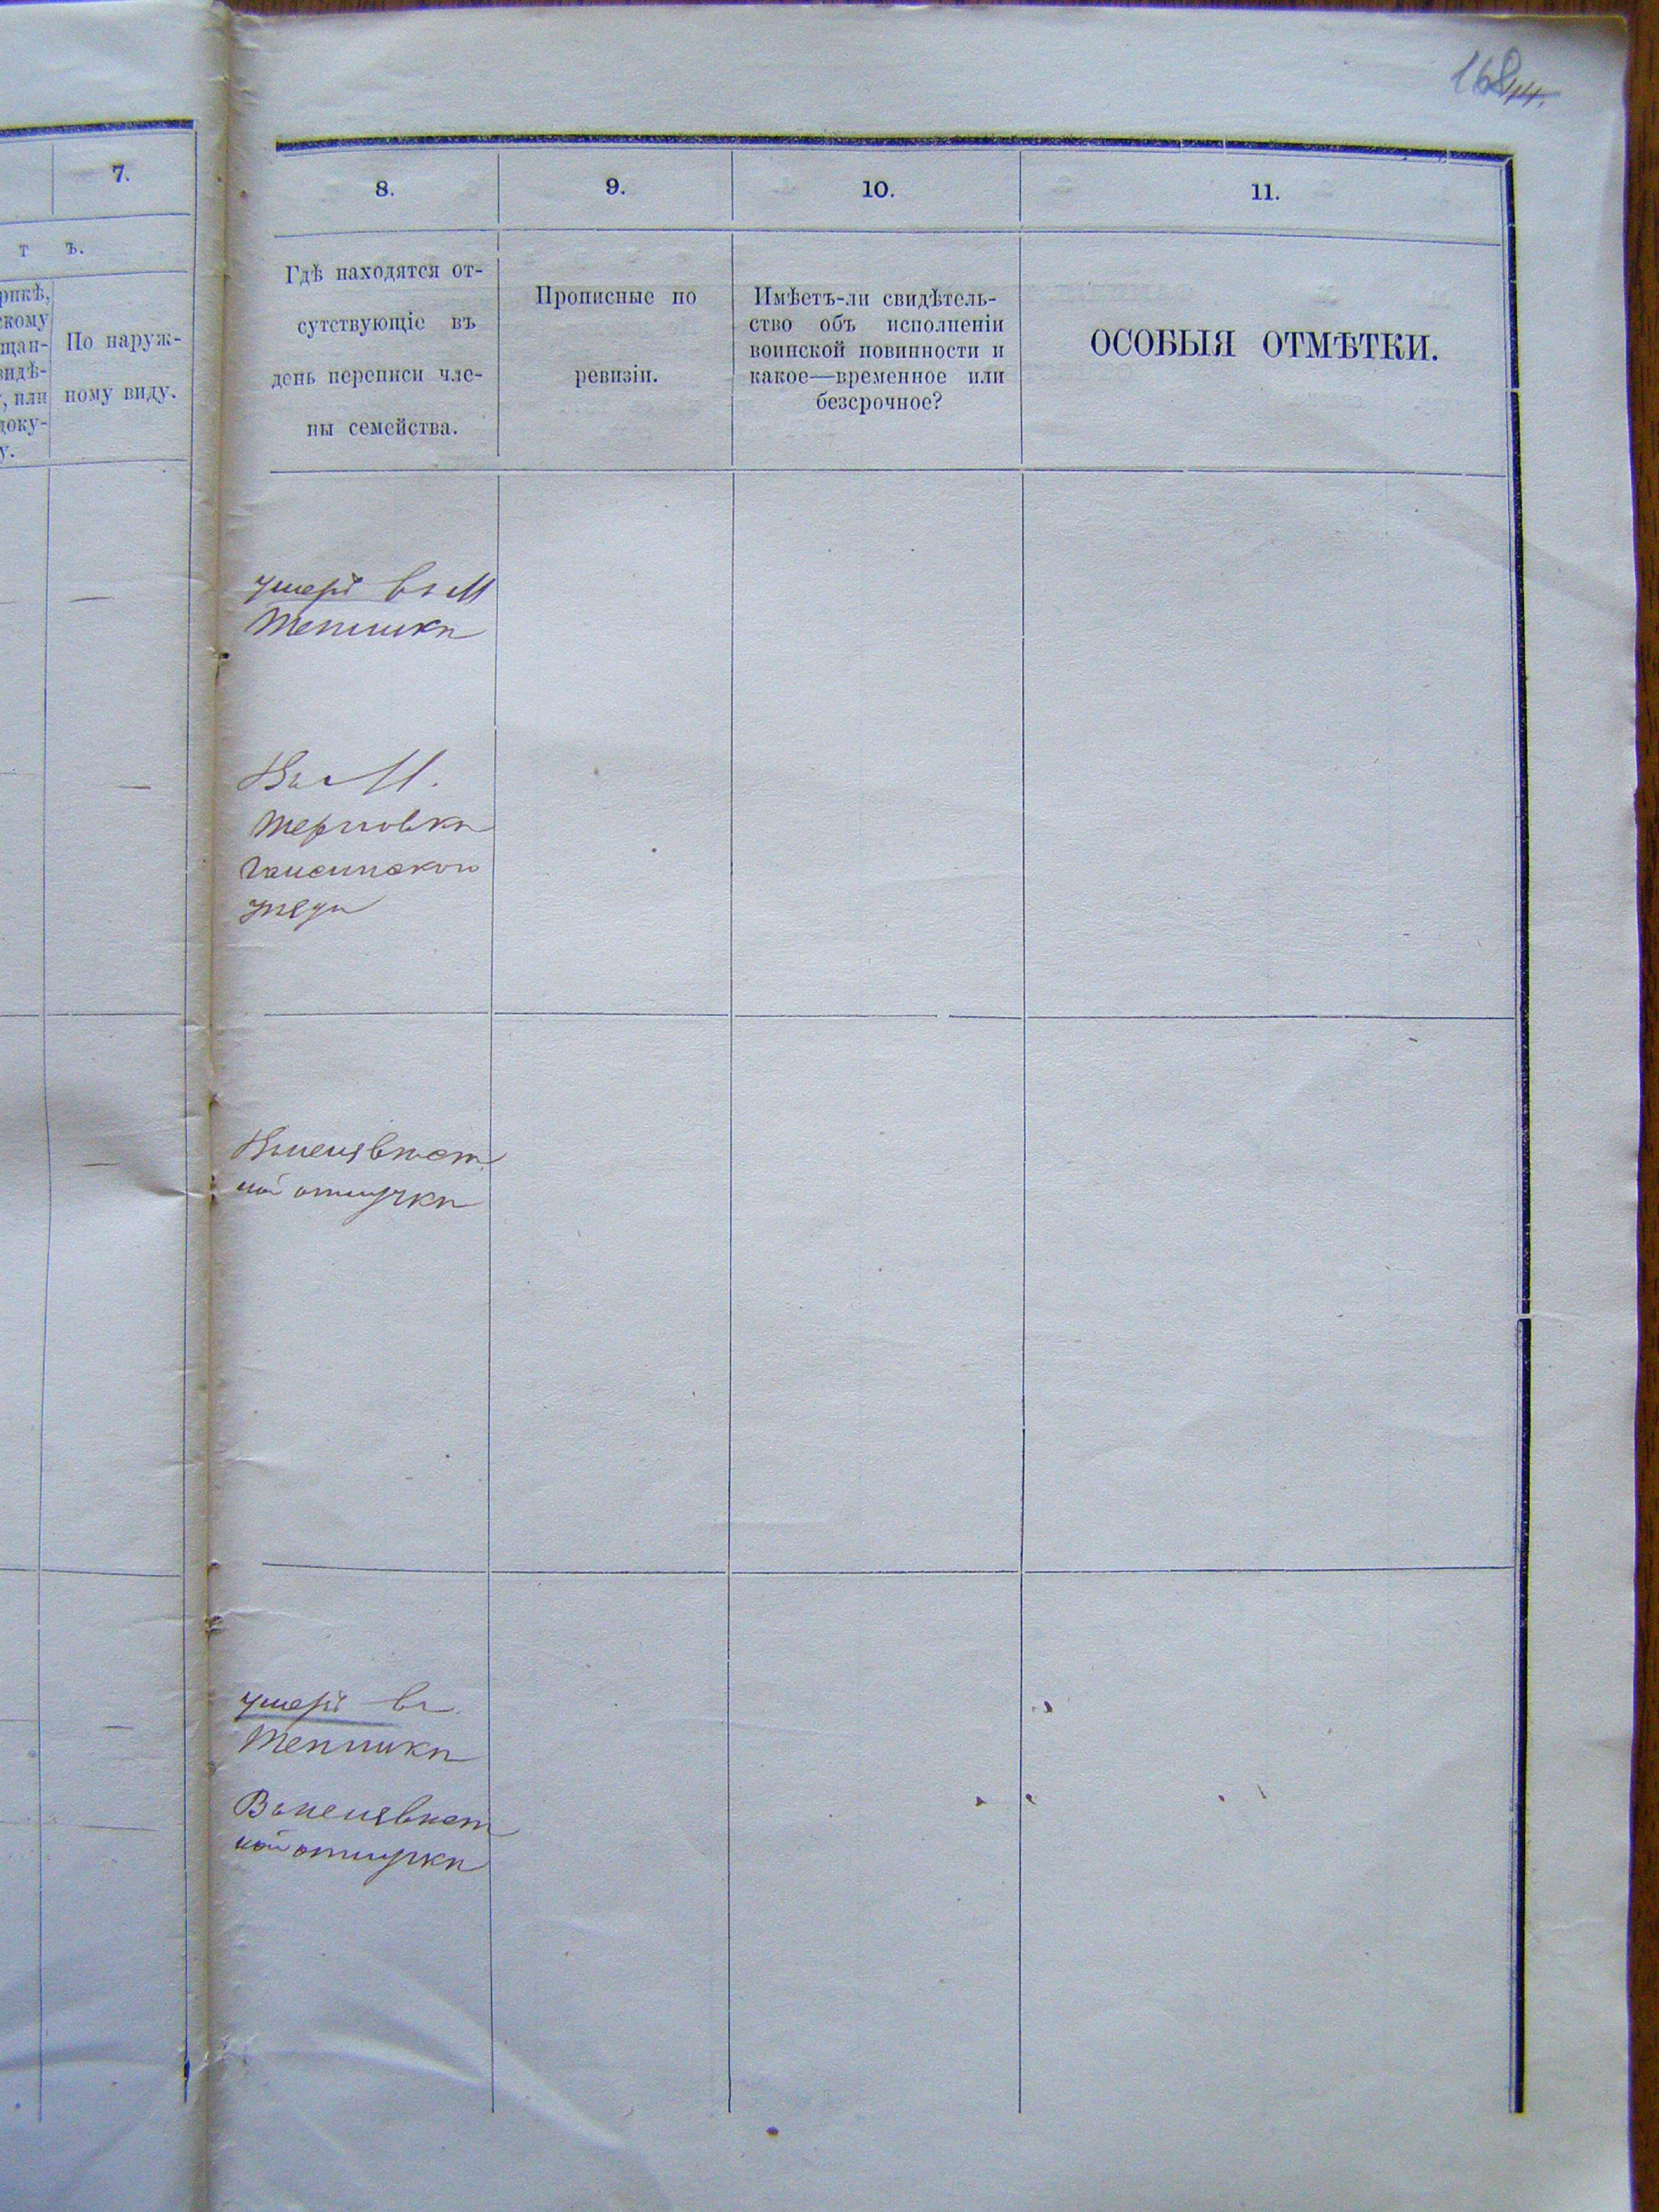 168
44.
7.
т ъ.
рикѣ,
скому
щан-
видѣ-
, или
доку-
у.
По наруж-
ному виду.
8.
9.
10.
11.
Гдѣ находятся от-
сутствующіе въ
день переписи чле-
ны семейства.
Прописные по
ревизіи.
Имѣетъ-ли свидѣтель-
ство объ исполненіи
воинской повинности и
какое—временное или
безсрочное?
ОСОБЫЯ ОТМѢТКИ.
умеръ въ М
Тепликѣ
Въ М.
Терновкѣ
Гайсинскаго
уѣзда
Въ неизвѣст
ной отлучкѣ
умеръ въ
Тепликѣ
Въ неизвѣст
ной отлучкѣ